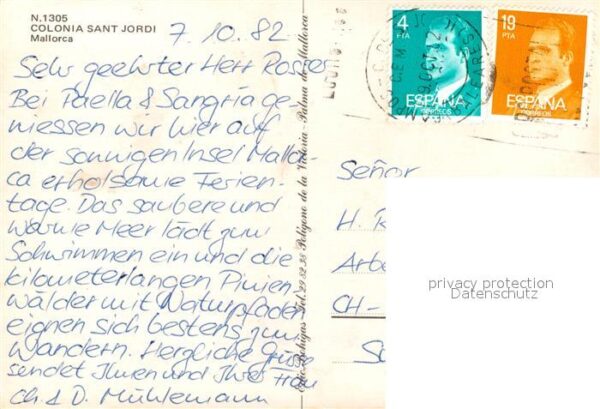 N.1305
COLONIA SANT JORDI
Mallorca
7.10.82
Sehr geehrter Herr Rosser
Bei Paella & Sangria ge-
niessen wir hier auf
der sonnigen Insel Mallor-
ca erholsame Ferien-
tage. Das saubere und
warme Meer lädt zum
Schwimmen ein und die
kilometerlangen Pinien-
wälder mit Naturpfaden
eignen sich bestens zum
Wandern. Herzliche Grüsse
sendet Ihnen und Ihrer Frau
Ch & D. Mühlemann
Polígono de la Victoria - Palma de Mallorca
4
PTA
ESPAÑA
CORREOS
19
PTA
ESPAÑA
CORREOS
Señor
H. R
Arbe
CH-
privacy protection
Datenschutz